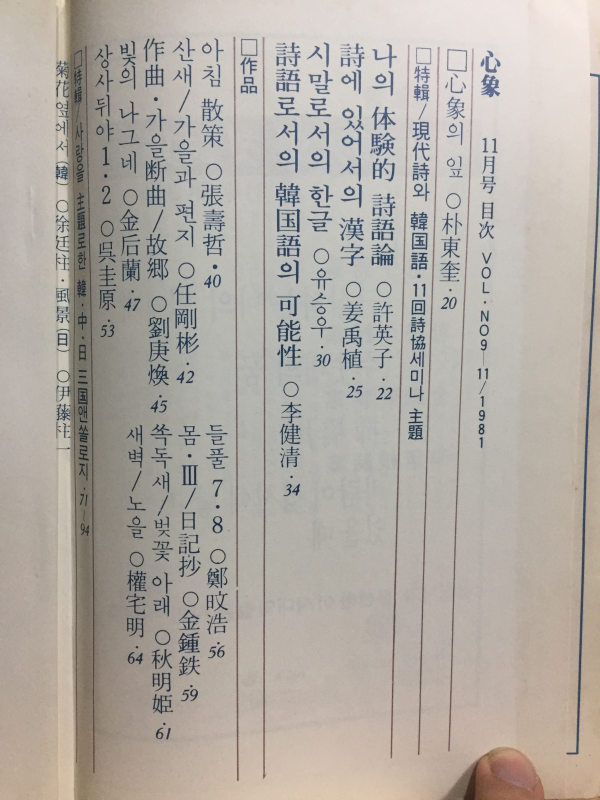 心象 11月号 目次 VOL·NO9―11/1981
□心象의 잎 ○朴東奎·20
□特輯/現代詩와 韓国語·11回詩協세미나 主題
나의 体験的 詩語論 ○許英子·22
詩에 있어서의 漢字 ○姜禹植·25
시말로서의 한글 ○유승우·30
詩語로서의 韓国語의 可能性 ○李健清·34
□作品
아침 散策 ○張壽哲·40
산새/가을과 편지 ○任剛彬·42
作曲·가을断曲/故郷 ○劉庚煥·45
빛의 나그네 ○金后蘭·47
상사뒤야 1·2 ○呉圭原·53
들풀 7·8 ○鄭旼浩·56
몸·Ⅲ/日記抄 ○金鍾鉄·59
쏙독새/벚꽃 아래 ○秋明姫·61
새벽/노을 ○權宅明·64
□特輯/사랑을 主題로한 韓·中·日 三国앤쏠로지·71~94
菊花옆에서(韓) ○徐廷柱·風景(日) ○伊藤桂一